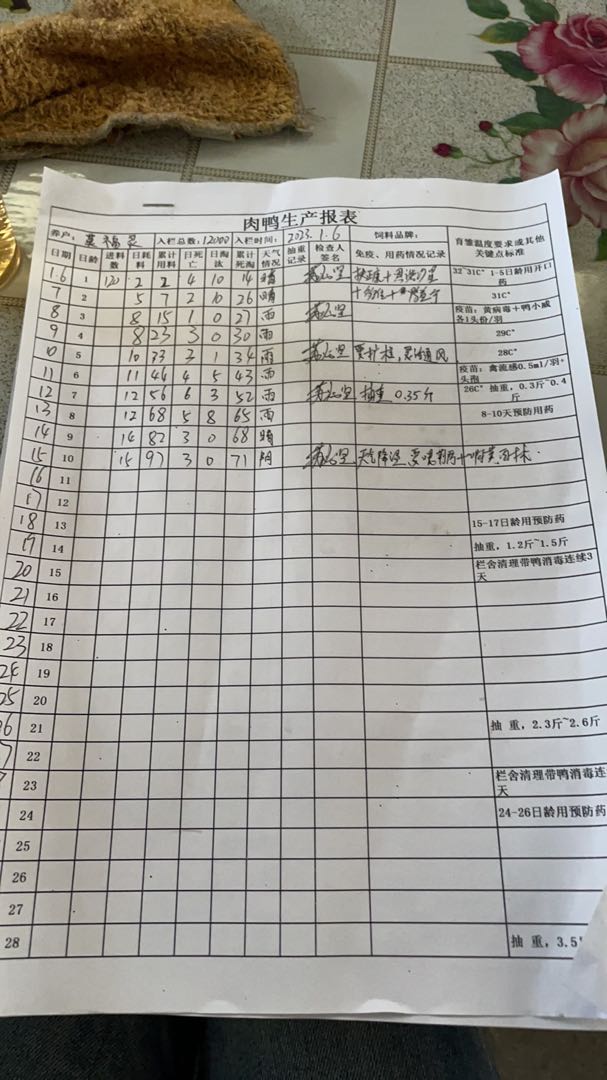 肉鸭生产报表
养户: 莫福灵 入栏总数: 12000 入栏时间: 2023.1.6 饲料品牌: 育雏温度要求或其他关键点标准
日期 日龄 进料数 日耗料 累计用料 日死亡 日淘汰 累计死淘 天气情况 抽重记录 检查人签名 免疫、用药情况记录
1.6 1 120 2 2 4 10 14 晴 32~31C° 1-5日龄用开口药
7 2 5 7 2 10 26 晴 31C°
8 3 8 15 1 0 27 雨 疫苗: 黄病毒+鸭小威各1头份/羽
9 4 8 23 3 0 30 雨 29C°
10 5 10 33 2 1 34 雨 28C°
11 6 11 44 4 5 43 雨 疫苗: 禽流感0.5ml/羽+头孢
12 7 12 56 6 3 52 雨 抽重 0.35斤 26C° 抽重, 0.3斤~0.4斤
13 8 12 68 5 8 65 雨 8-10天预防用药
14 9 14 82 3 0 68 晴
15 10 15 97 3 0 71 阴 天气降温
16 11
17 12
18 13 15-17日龄用预防药
19 14 抽重, 1.2斤~1.5斤
20 15 栏舍清理带鸭消毒连续3天
21 16
22 17
23 18
24 19
25 20
6 21 抽 重, 2.3斤~2.6斤
7 22
23 栏舍清理带鸭消毒连天
24 24-26日龄用预防药
25
26
27
28 抽 重, 3.5